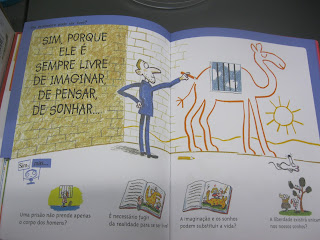 SIM, PORQUE
ELE É
SEMPRE LIVRE
DE IMAGINAR,
DE PENSAR,
DE SONHAR...
Sim,
mas...
Uma prisão não prende apenas
o corpo dos homens?
É necessário fugir
da realidade para se ser
A imaginação e os sonhos
podem substituir a vida?
A liberdade
nos nossos sonhos?